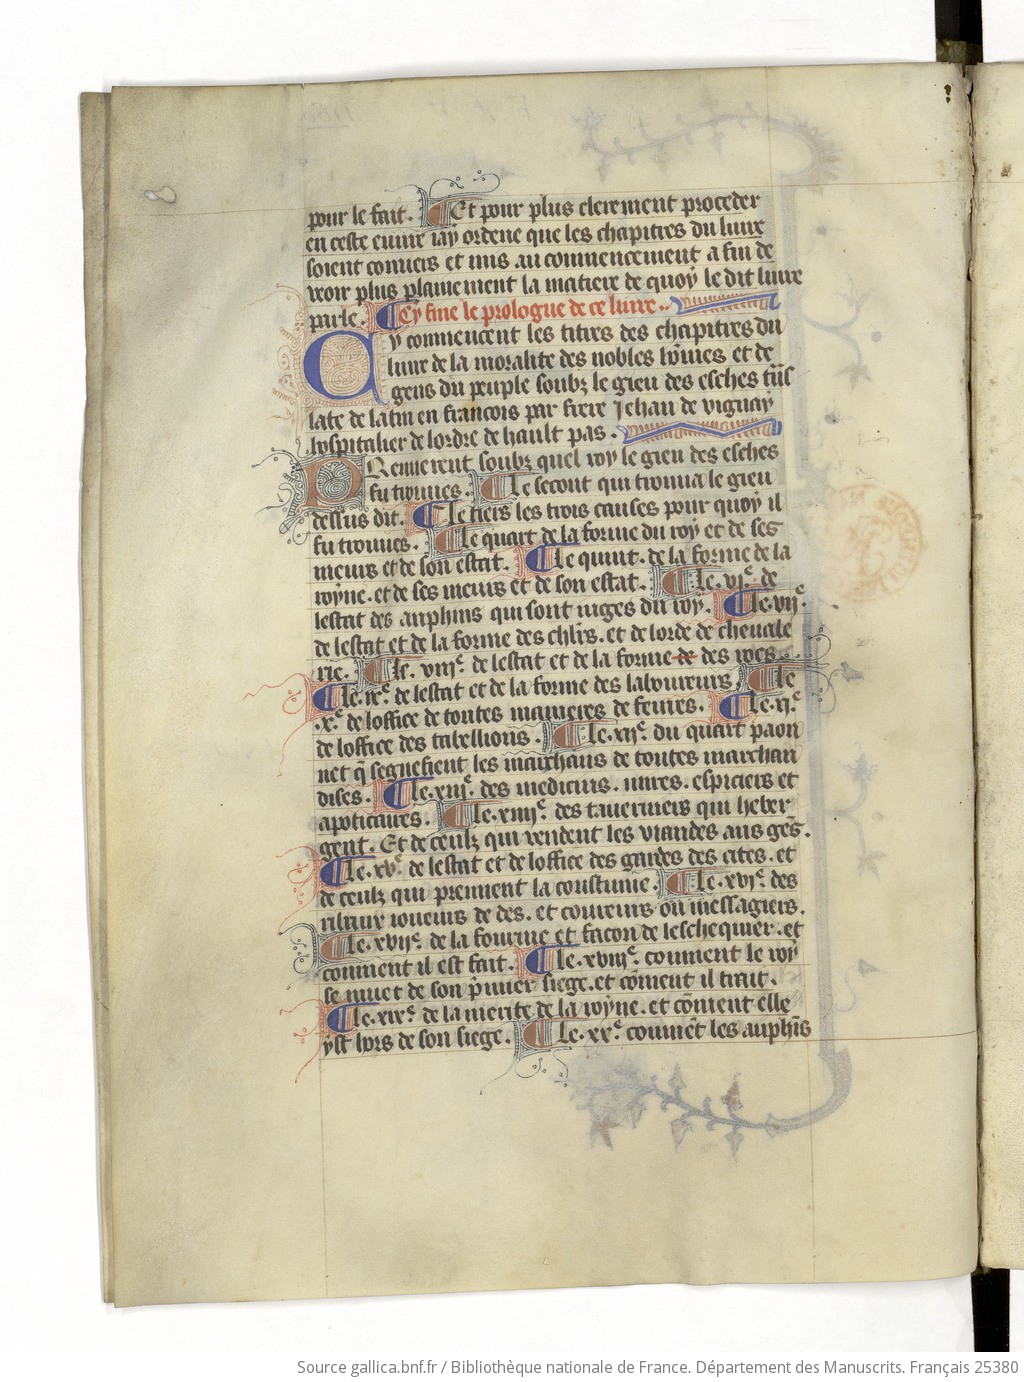 pour le fait. Et pour plus clerement proceder
en ceste euure iay ordene que les chapitres du liure
soient conueis et mis au commencement a fin de
veoir plus plainement la matiere de quoy le dit liure
parle. Cy fine le prologue de ce liure..
Cy commencent les titres des chapitres du
liure de la moralite des nobles hōmes et de
gens du peuple soubz le gieu des esches trās
late de latin en francois par frere Jehan de vignay
hospitalier de lordre de hault pas.
Premierent soubz quel roy le gieu des esches
fu trouues. Le secont qui trouua le gieu
dessus dit. Le tiers les trois causes pour quoy il
fu trouues. Le quart de la forme du roy et de ses
meurs et de son estat. Le quint. de la forme de la
royne. et de ses meurs et de son estat. Le .viͤ. de
lestat des auphins qui sont iuges du roy. Le .viiͤ.
de lestat et de la forme des chlrs̄. et de lorde de cheuale
rie. Le .viiiͤ. de lestat et de la forme de des rocs.
Le .ixͤ. de lestat et de la forme des laboureurs. Le
.xͤ. de loffice de toutes manieres de feures. Le .xiͤ.
de loffice des tabellions. Le .xiiͤ. du quart paon
net q̄ segnefient les marchans de toutes marchan
dises. Le .xiiiͤ. des medicins. mires. espiciers et
apoticaires. Le .xiiiiͤ. des tauerniers qui heber
gent. Et de ceulz qui vendent les viandes aus gēs.
Le .xvͤ. de lestat et de loffice des gardes des cites. et
de ceulz qui prennent la coustume. Le .xviͤ. des
ribaux ioueurs de des. et coureurs ou messagiers.
Le .xviiͤ. de la fourme et facon de leschequier. et
comment il est fait. Le .xviiiͤ. comment le roy
se muet de son p̄mier siege. et cōment il trait.
Le .xixͤ. de la merite de la royne. et cōment elle
yst hors de son siege. Le .xxͤ. commēt les auphīs
Source gallica.bnf.fr / Bibliothèque nationale de France. Département des Manuscrits. Français 25380